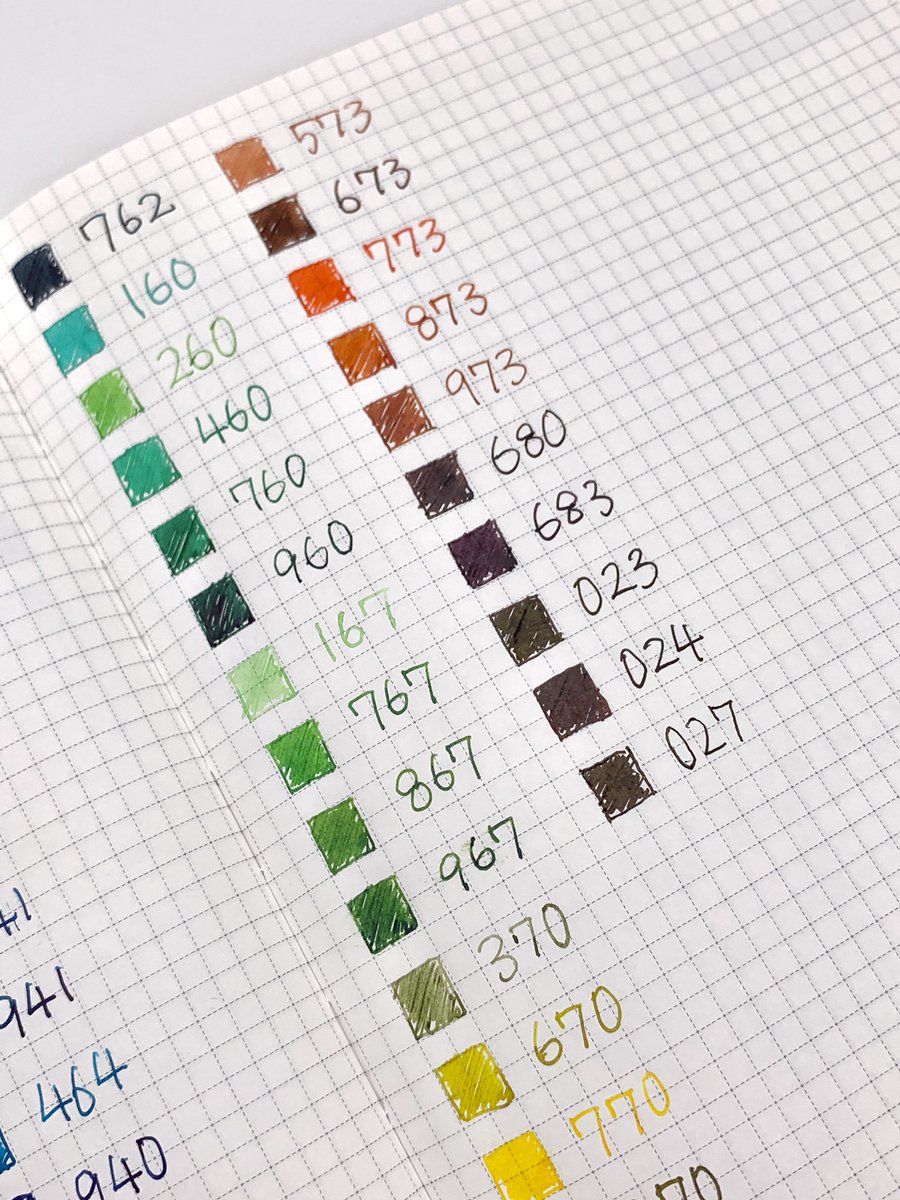 941
464
940
762
160
260
460
760
960
167
767
867
967
370
670
770
573
673
773
873
973
680
683
023
024
027